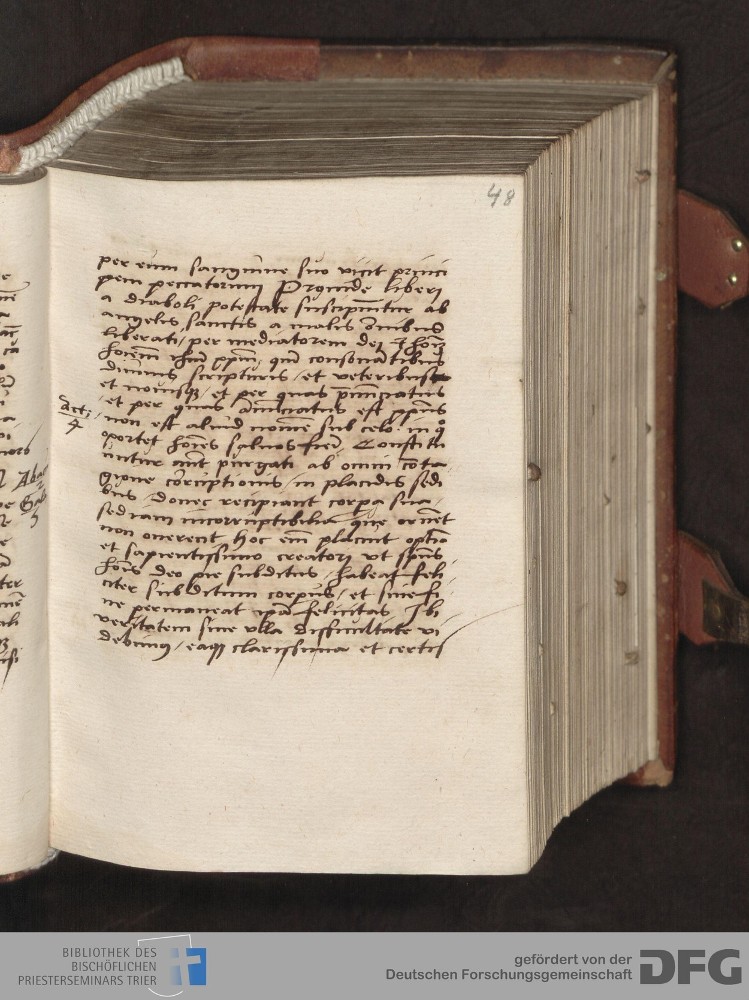 48
per eum sanguine suo vicit princi
pem peccatorum Proinde liberi
a diaboli potestate suscipiuntur ab
angelis sanctis a malis omnibus
liberati, per mediatorem dei et hoīm
hoīem
diuinis scripturis, et veteribus
et nouisque, et per quas
et per quas est
Act:
4
non est aliud nomē sub celo in q̄
oportet hoīes saluos fieri Constitu
untur purgati ab omni cōta
gione corruptionis, in placidis sedi
bus, donec recipiant corpa sua,
sed iam incorruptibilia que ornēt
non onerent hoc em̄ placuit optīo
et sapientissimo creatori vt spūs
hoīs deo pie subditus, habeat feli
citer subditum corpus, et sine fi
ne permaneat felicitas Ibi
veritatem sine vlla difficultate vi
debimus, eaque clarissima et certis
Abac
BIBLIOTHEK DES
BISCHÖFLICHEN
PRIESTERSEMINARS TRIER
gefördert von der
Deutschen Forschungsgemeinschaft
DFG